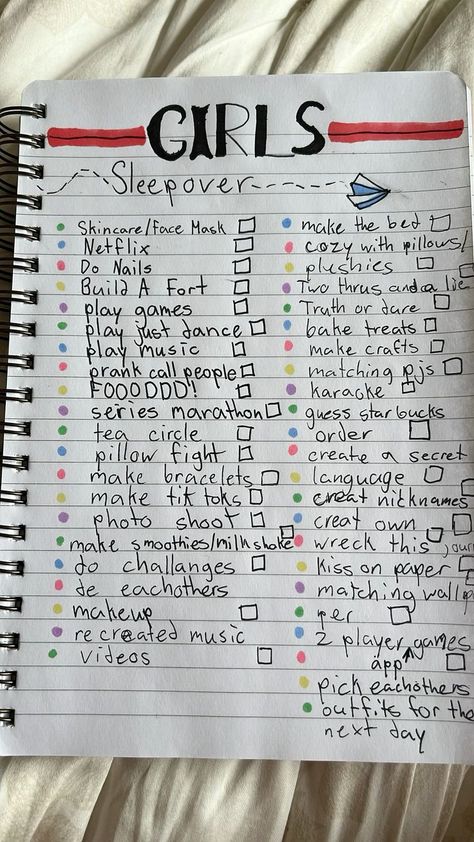 GIRLS
Sleepover
Skincare/Face Mask
Netflix
Do Nails
Build A Fort
play games
play just dance
play music
prank call people
FOOODDD!
series marathon
tea circle
pillow fight
make bracelets
make tik toks
photo shoot
make smoothies/milkshake
do challanges
de eachothers
makeup
recreated music
videos
make the bed
cozy with pillows/
plushies
Two thrus and a lie
Truth or dare
bake treats
make crafts
matching pjs
karaoke
guess starbucks
order
create a secret
language
creat nicknames
creat own
wreck this
kiss on paper
matching wallpa
per
2 player games
app
pick eachothers
outfits for the
next day